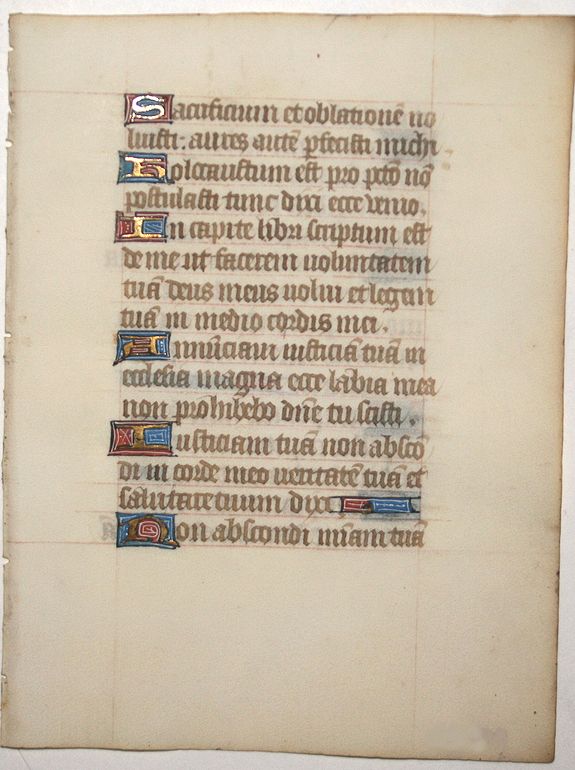 Sacrificium et oblationē no
luisti: aures autē pfecisti michi
Holocaustum est pro pctō nō
postulasti tunc dixi ecce venio.
In capite libri scriptum est
de me ut facerem uoluntatem
tuā deus meus uolui et legem
tuā in medio cordis mei.
Annunciaui iusticiā tuā in
ecclesia magna ecce labia mea
non prohibebo dn̄e tu scisti.
Iusticiam tuā non absco
di in corde meo ueritatē tuā et
salutare tuum dixi
Non abscondi miām tuā